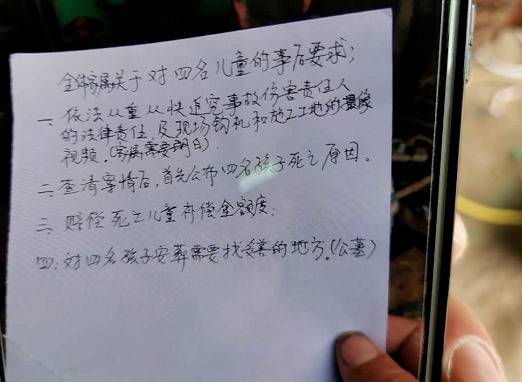 全体家属关于对四名儿童的事后要求;
一、依法从重从快追究事故伤害责任人
的法律责任,及现场钩机和施工工地的摄像
视频。(家属需要明白)
二、查清案情后,首先公布四名孩子死亡原因。
三、赔偿死亡儿童补偿金额度:
四:对四名孩子安葬需要找妥善的地方。(公墓)